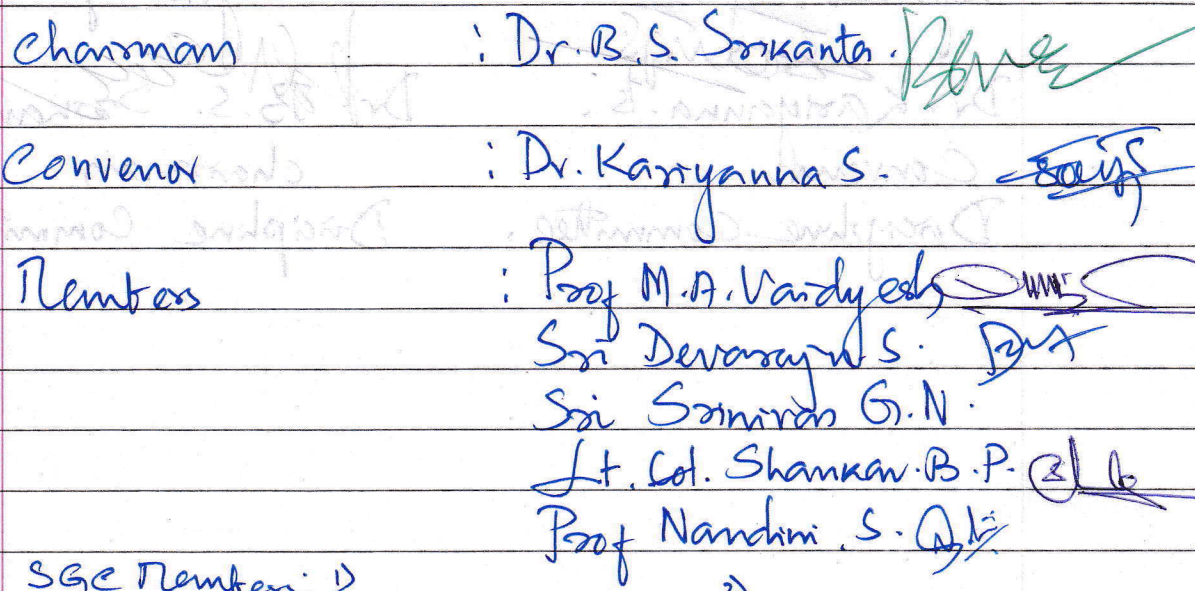 Chairman : Dr. B. S. Srikanta.
Convenor : Dr. Kariyanna S.
Members : Prof M.A. Vaidyesh
Sri Devaraju S.
Sri Srinivas G.N.
Lt. Col. Shankar. B. P.
Prof Nandini. S.
SGC Members: 1) 2)